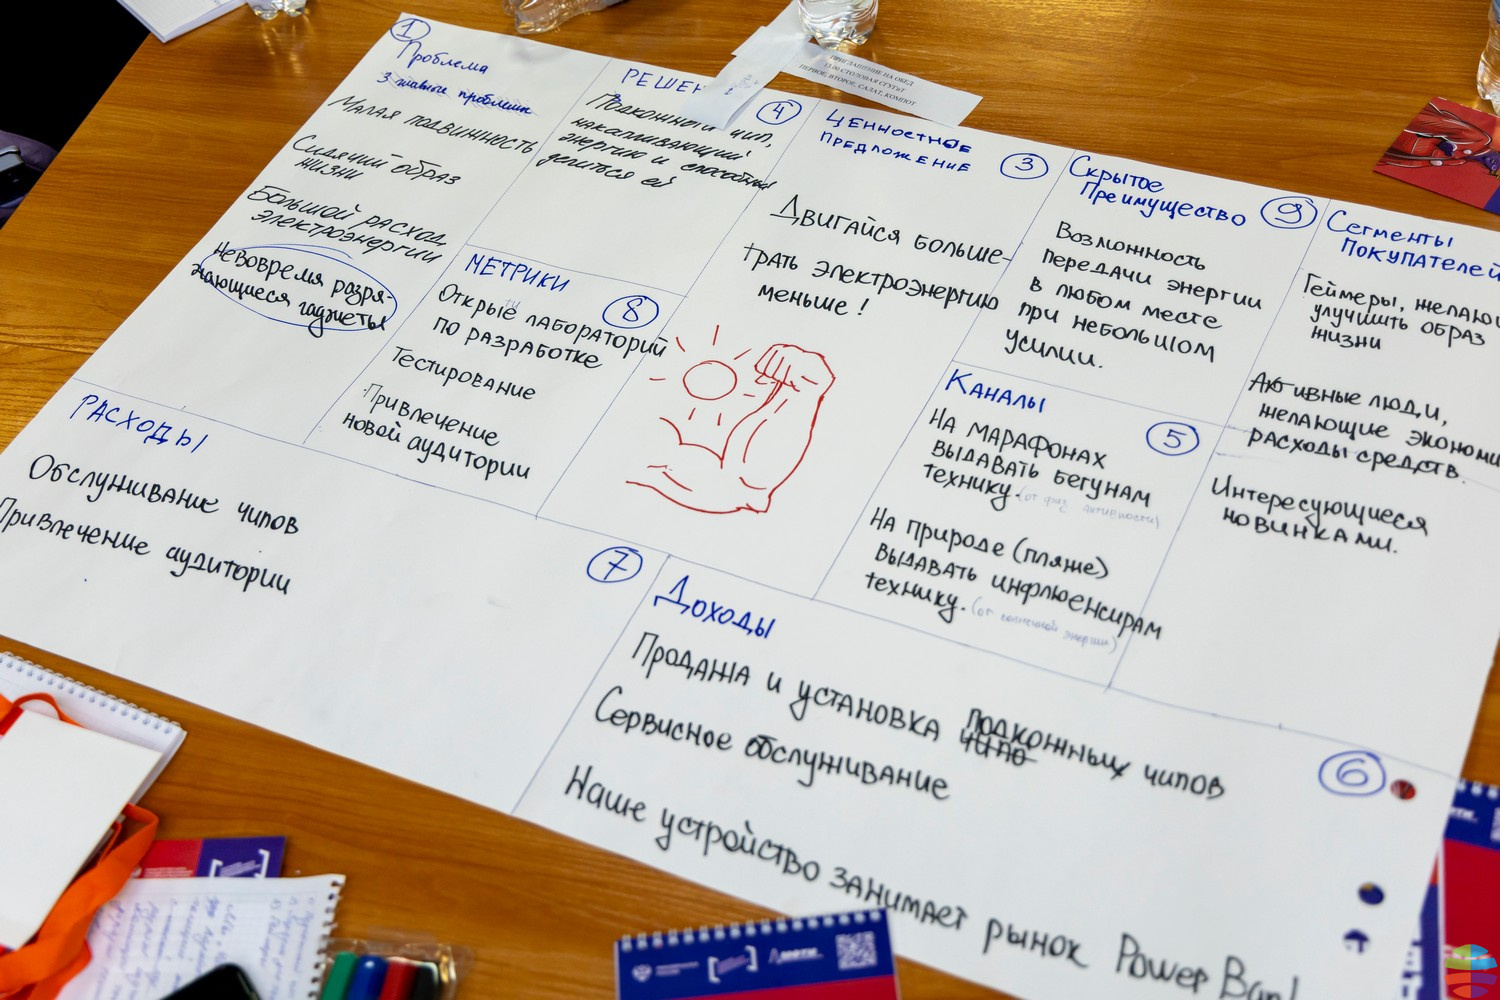 1
Проблема
3 главные проблемы
Малая подвижность
Сидячий образ
жизни
Большой расход
электроэнергии
Невовремя разря-
жающиеся гаджеты
РЕШЕН
4
Подкожный чип,
накапливающий
энергию и способный
делиться ей
МЕТРИКИ
8
Открытие лабораторий
по разработке
Тестирование
Привлечение
новой аудитории
ЦЕННОСТНОЕ
ПРЕДЛОЖЕНИЕ
3
Двигайся больше-
трать электроэнергию
меньше!
Скрытое
Преимущество
9
Возможность
передачи энергии
в любом месте
при небольшом
усилии.
Каналы
5
На марафонах
выдавать бегунам
технику. (от физ активности)
На природе (пляже)
выдавать инфлюенсирам
технику. (от солнечной энергии)
Сегменты
покупателей
Геймеры, желающ
улучшить образ
жизни
Активные люди,
желающие экономи
расходы средств.
Интересующиеся
новинками.
РАСХОДЫ
7
Обслуживание чипов
Привлечение аудитории
Доходы
6
Продажа и установка подкожных чипов
Сервисное обслуживание
Наше устройство занимает рынок Power Ban
ПРИГЛАШЕНИЕ НА ОБЕД
13.00 СТОЛОВАЯ СГУГиТ
ПЕРВОЕ, ВТОРОЕ, САЛАТ, КОМПОТ